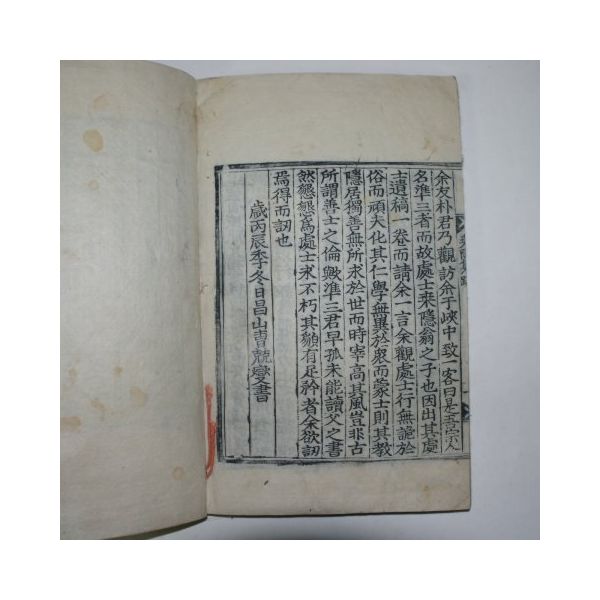 余友朴君乃觀訪余于峽中致一客曰是吾宗人
名準三者而故處士桒隱翁之子也因出其處
士遺稿一卷而請余一言余觀處士行無詭於
俗而頑夫化其仁學無異於衆而蒙士則其敎
隱居獨善無所求於世而時宰高其風豈非古
所謂善士之倫歟準三君早孤未能讀父之書
然懇懇爲處士求不朽其顙有足矜者余欲訒
焉得而訒也
歲丙辰季冬日昌山曺兢燮書